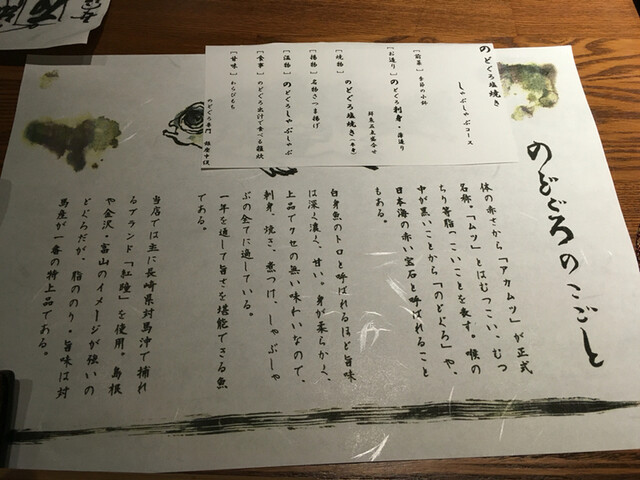 のどぐろ塩焼き
しゃぶしゃぶコース
［前菜］季節の小鉢
［お造り］のどぐろ刺身・薄造り
鮮魚三点盛合せ
［焼物］のどぐろ塩焼き（半身）
［揚物］名物さつま揚げ
［温物］のどぐろしゃぶしゃぶ
［食事］のどぐろ出汁で食べる雑炊
［甘味］わらびもち
のどぐろ専門 銀座中俣
のどぐろのこごと
体の赤さから「アカムツ」が正式
名称。「ムツ」とはむつこい、むつ
ちり等脂っこいことを表す。喉の
中が黒いことから「のどぐろ」や、
日本海の赤い宝石と呼ばれること
もある。
白身魚のトロと呼ばれるほど旨味
は深く濃く、甘い。身が柔らかく、
上品でクセの無い味わいなので、
刺身、焼き、煮つけ、しゃぶしゃ
ぶの全てに適している。
一年を通して旨さを堪能できる魚
である。
当店では主に長崎県対馬沖で捕れ
るブランド「紅瞳」を使用。島根
や金沢・富山のイメージが強いの
どぐろだが、脂ののり・旨味は対
馬産が一番の特上品である。